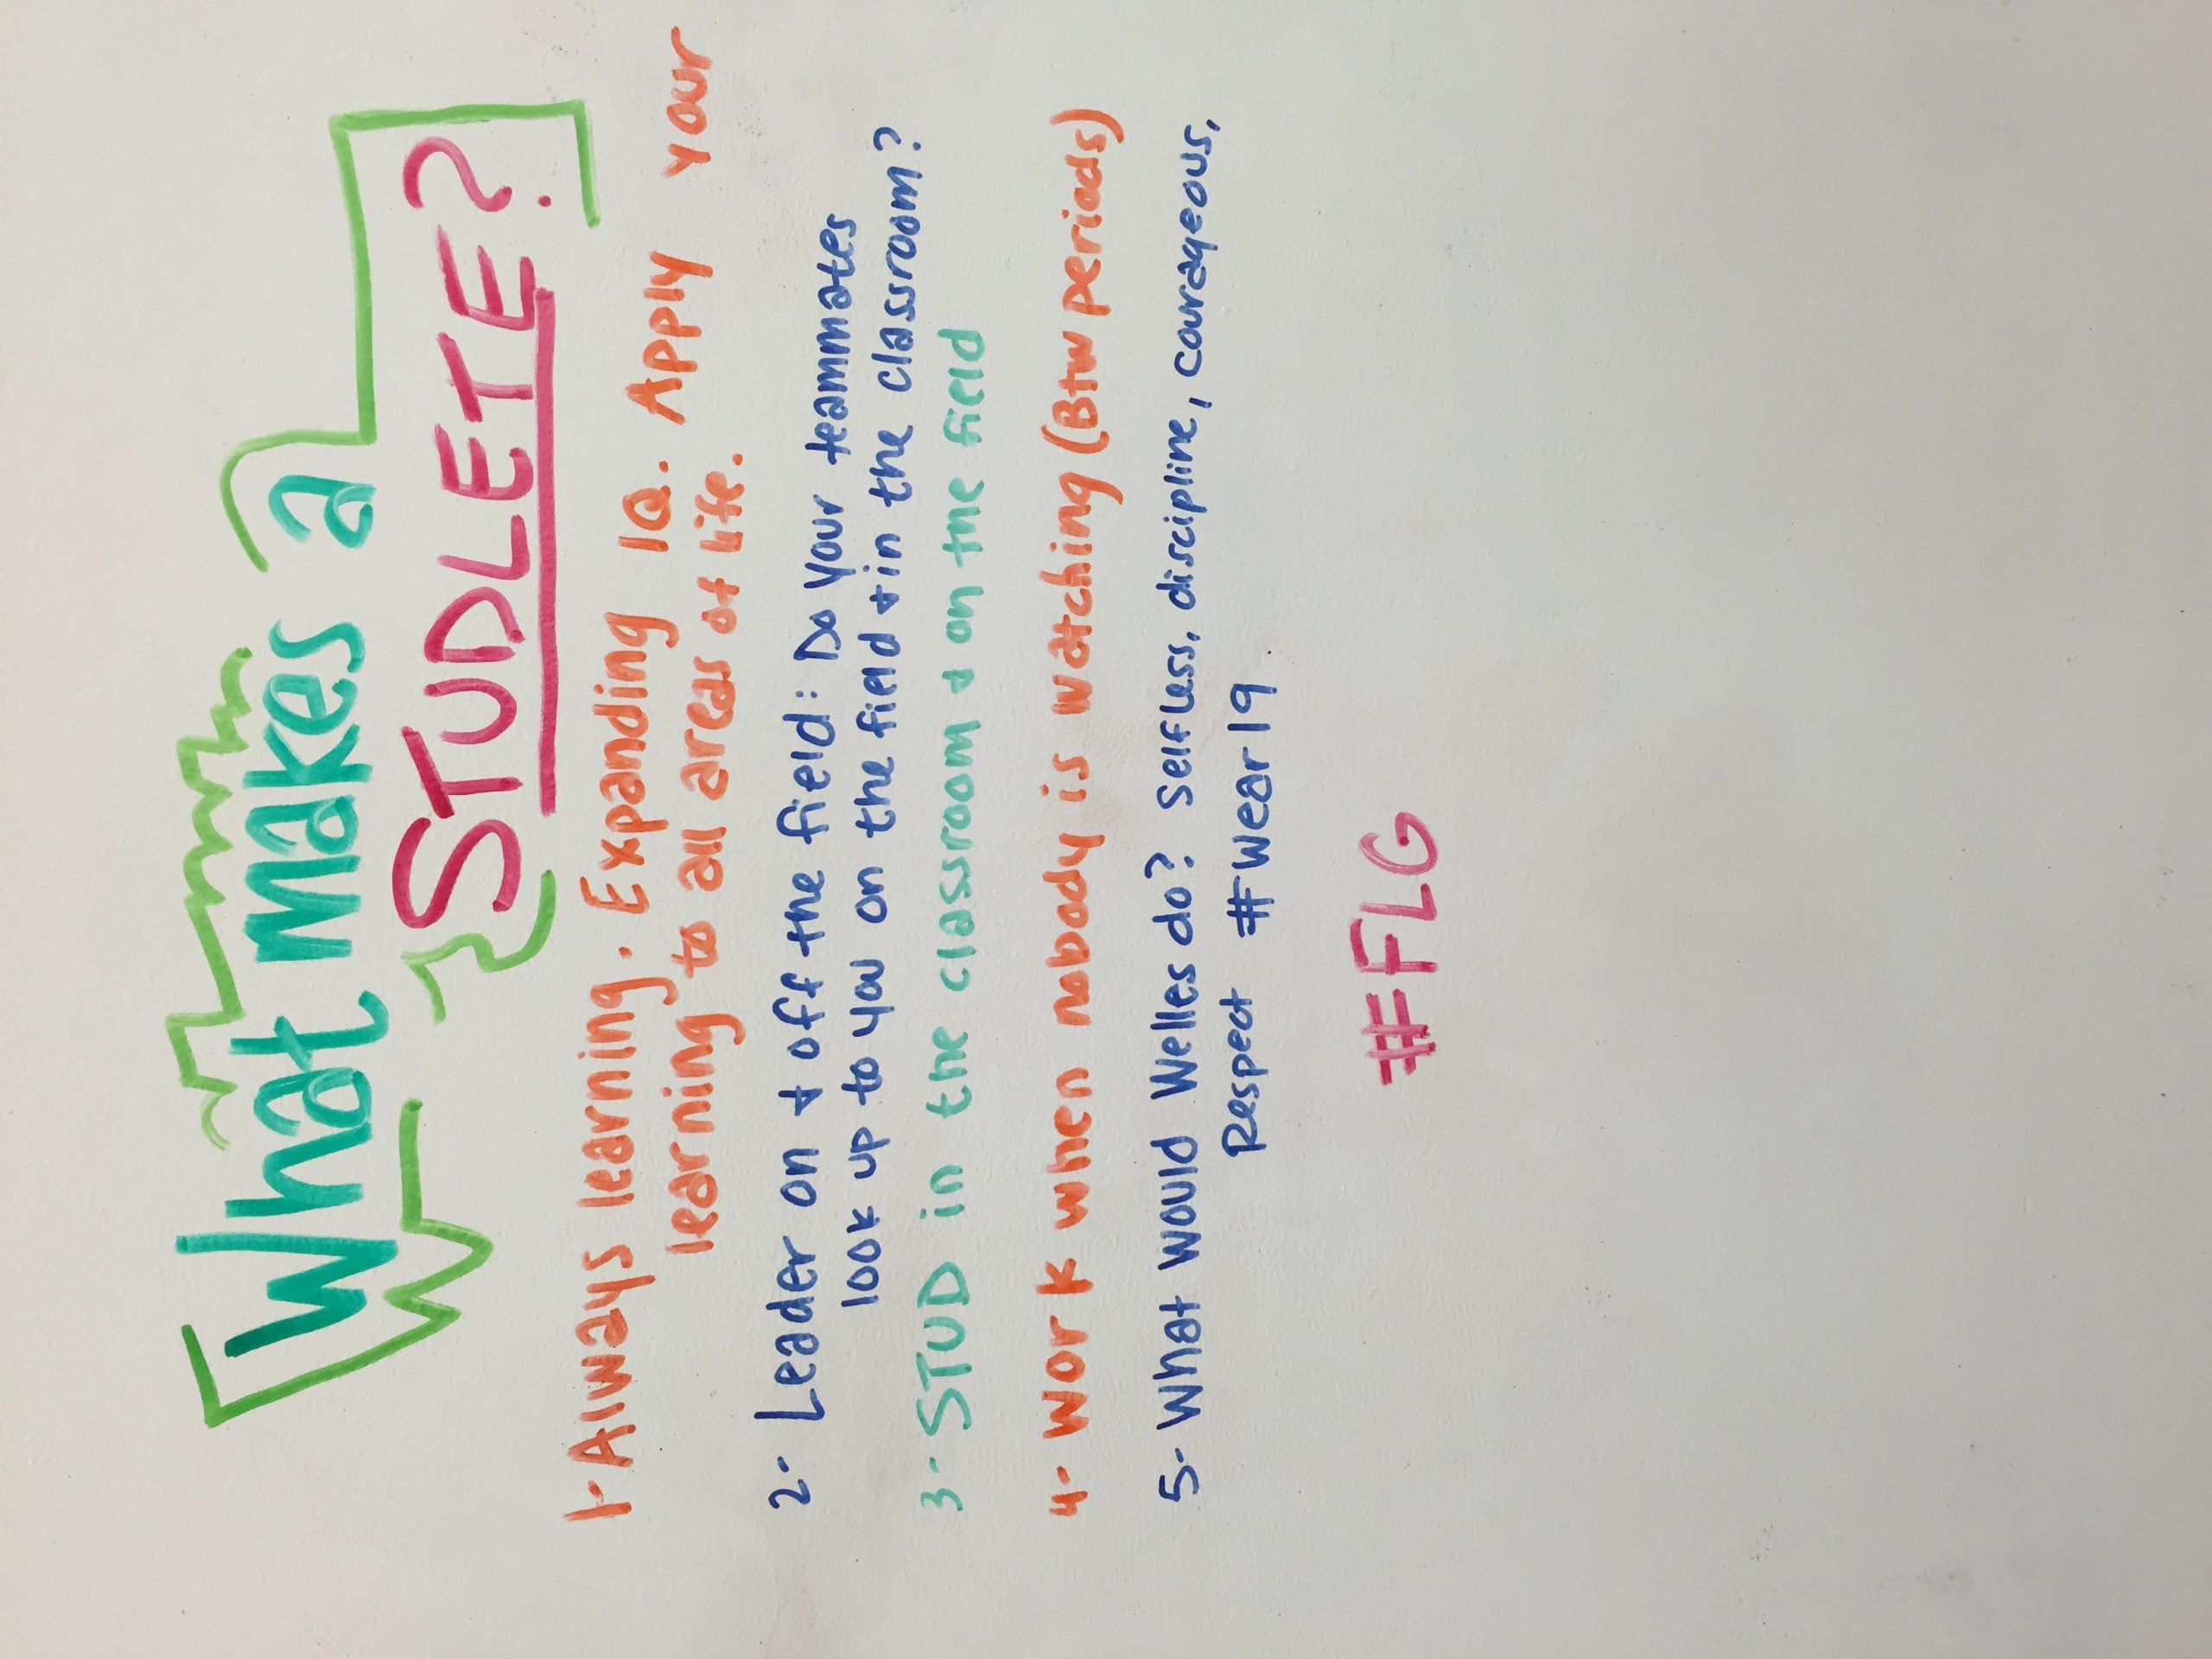 What makes a
STUDLETE?
1- Always learning. Expanding IQ. Apply your
learning to all areas of life.
2- Leader on + off the field: Do your teammates
look up to you on the field + in the classroom?
3- STUD in the classroom + on the field
4- Work when nobody is watching (Btw periods)
5- What would Welles do? Selfless, discipline, courageous,
Respect #Wear19
#FLG